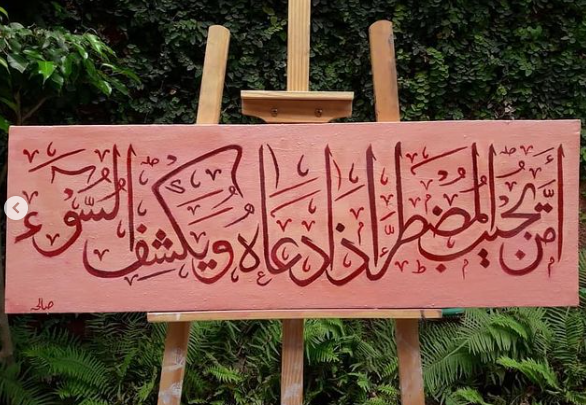 أَمَّن يُجِيبُ المُضْطَرَّ إِذَا دَعَاهُ وَيَكْشِفُ السُّوءَ
صالحہ